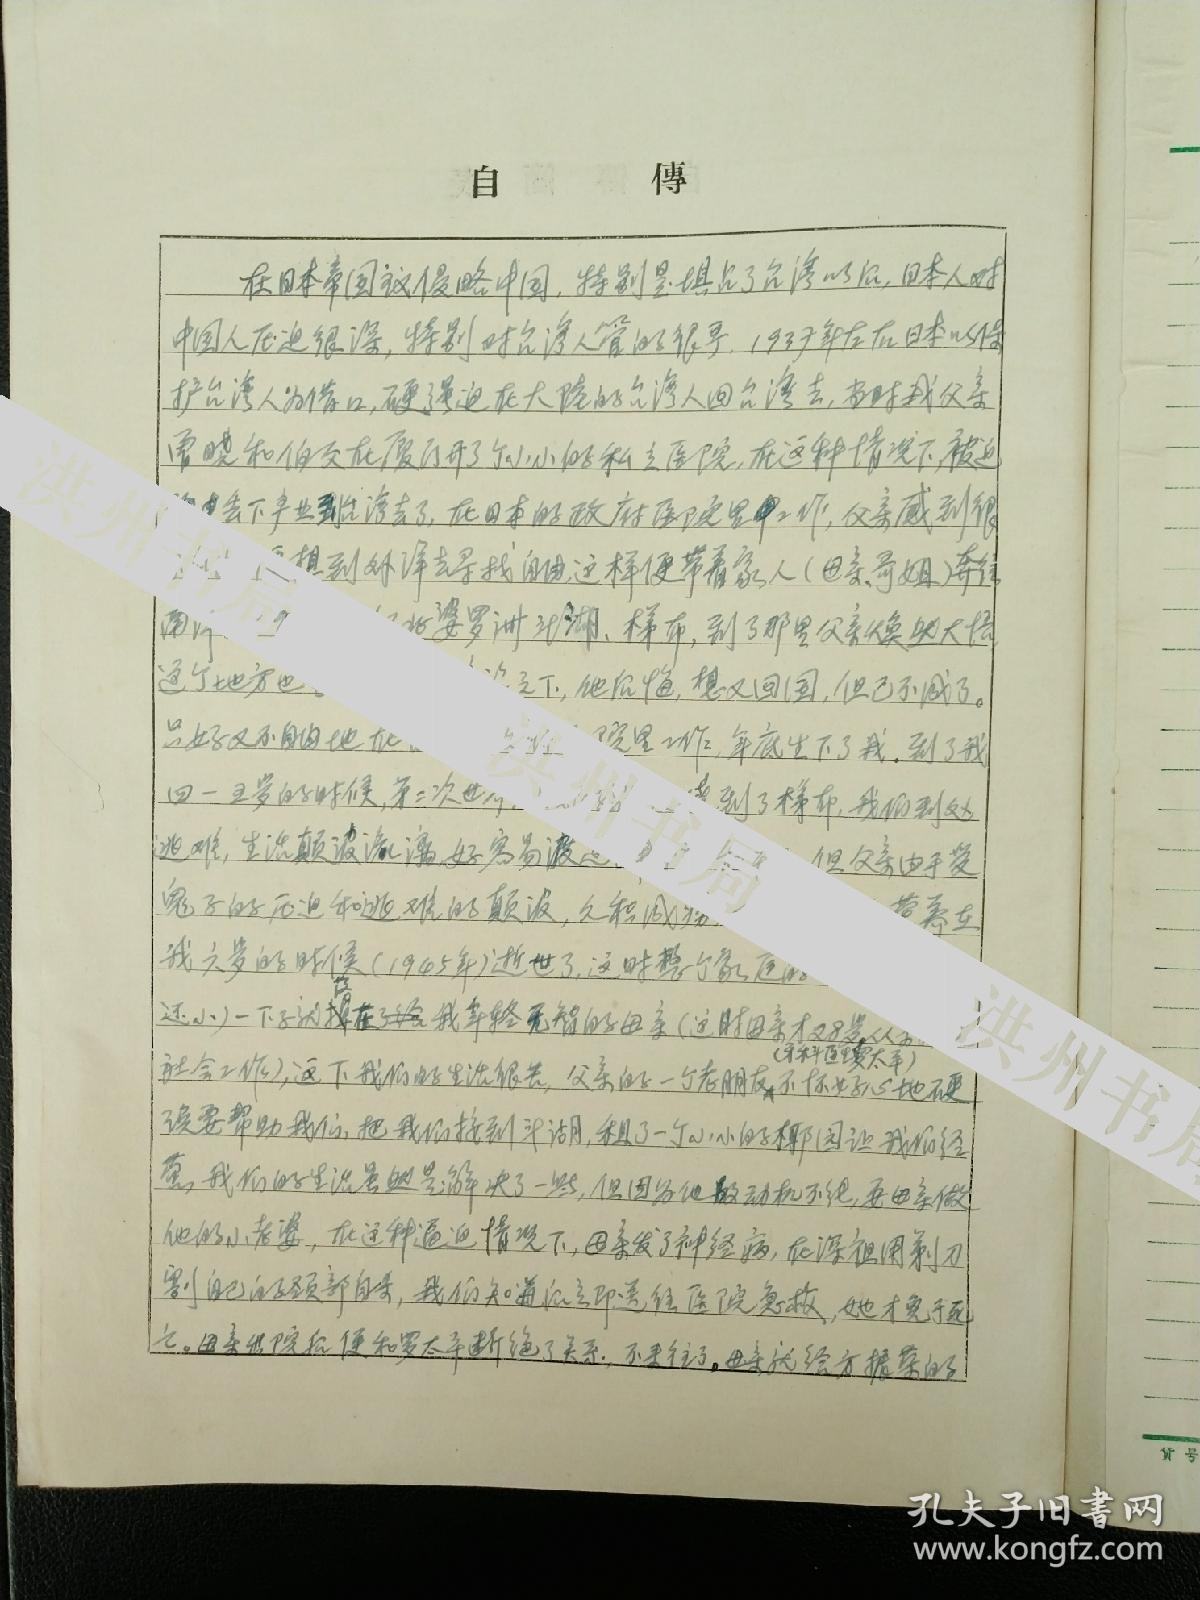 自 傳
在日本帝国主义侵略中国，特别是填占了台湾以后，日本人对
中国人压迫很深，特别对台湾人管的很严。1937年左右日本以保
护台湾人为借口，硬强迫在大陆的台湾人回台湾去，当时我父亲
曾晓和伯父在厦门开了个小小的私立医院，在这种情况下，被迫
丢下产业到台湾去了，在日本的政府医院里工作，父亲感到很
想到外洋去寻找自由，这样便带着家人（母亲、哥姐）奔往
南洋 婆罗洲斗湖、梯布，到了那里父亲焕然大悟
这个地方也 之下，他后悔，想又回国，但已不成了。
只好又不自由地在 院里工作，年底生下了我。到了我
四一五岁的时候，第二次世界 到了梯布，我们到处
逃难，生活颠波流漓，好容易渡 但父亲由于受
鬼子的压迫和逃难的颠波，久积成 营养在
我六岁的时候（1945年）逝世了，这时整个家庭的
还小）一下子就落在了我年轻无智的母亲（这时母亲才28岁，从
社会工作），这下我们的生活很苦，父亲的一个老朋友（牙科医 太平）不怀好心地硬
要帮助我们，把我们接到斗湖，租了一个小小的椰园让我们经
营，我们的生活虽然是解决了一些，但因为他 动机不纯，要母亲做
他的小老婆，在这种逼迫情况下，母亲发了神经病，在深 用剃刀
割自己的颈部自杀，我们知道后立即送往医院急救，她才免于死
亡。母亲出院后便和罗太平断绝了关系，不来往了。母亲就给方 的
货号
洪州书局
洪州书局
洪州书局
孔夫子旧书网
www.kongfz.com